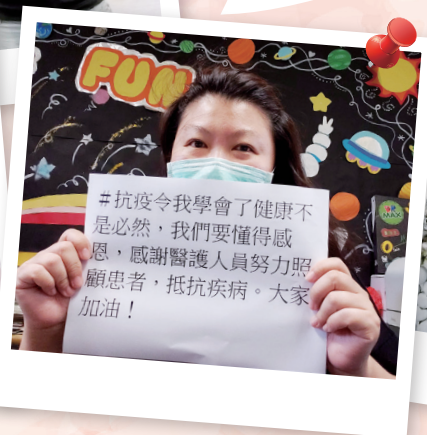 FUN
#抗疫令我學會了健康不
是必然，我們要懂得感
恩，感謝醫護人員努力照
顧患者，抵抗疾病。大家
加油！
MAX